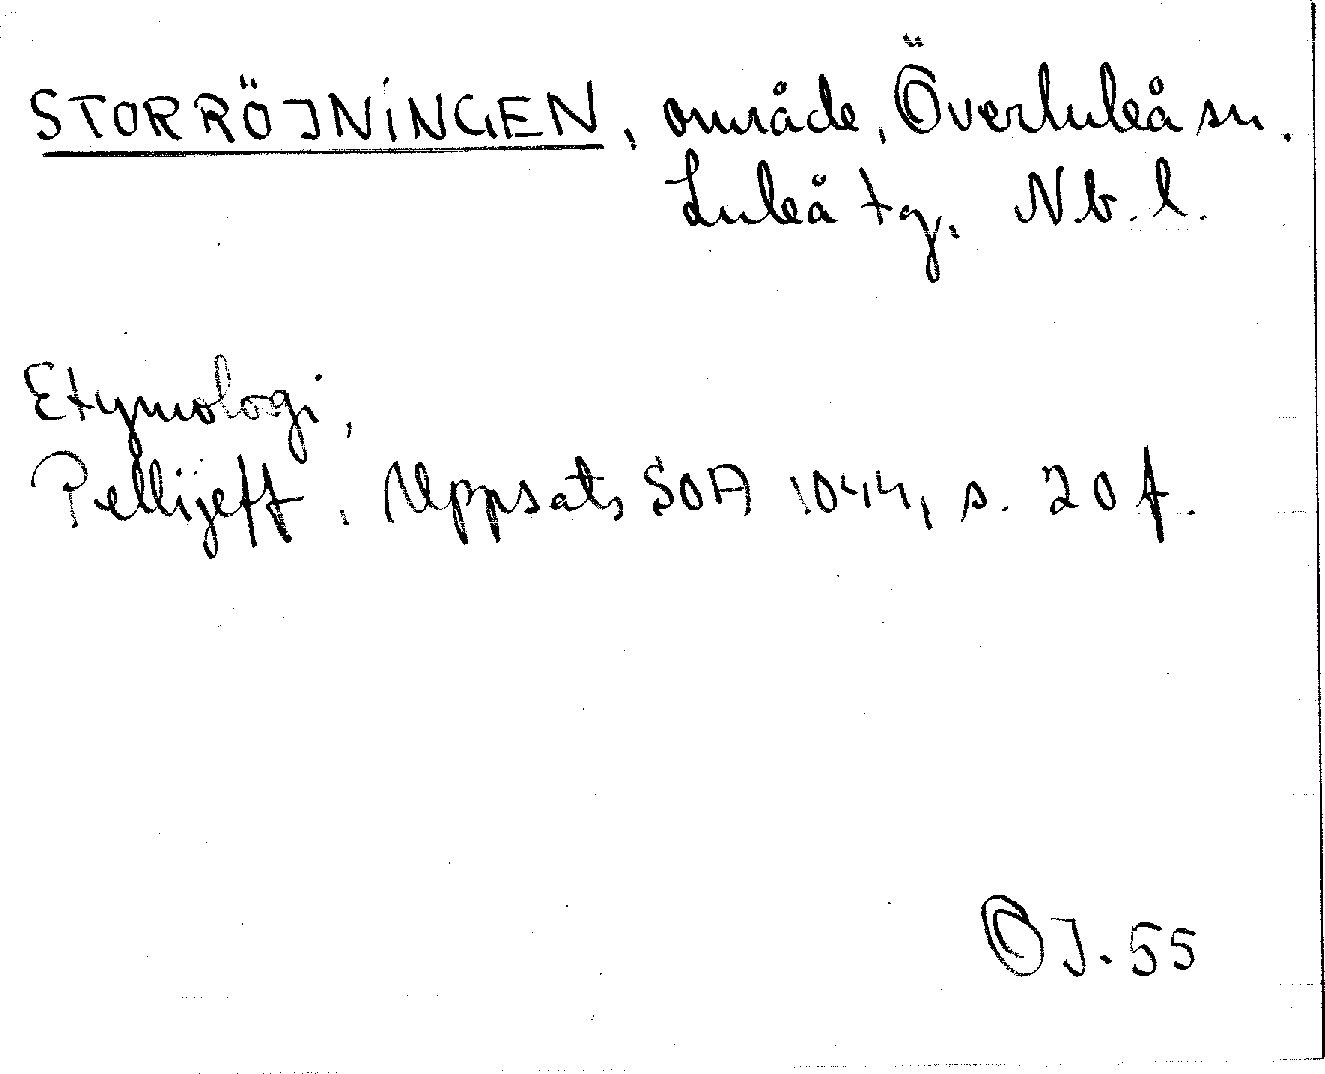 STORRÖJNINGEN, område, Överluleå sn.
Luleå tg. Nb. l.
Etymologi,
Pellijeff, Uppsats SOA 1044, s. 20 f.
OJ. 55